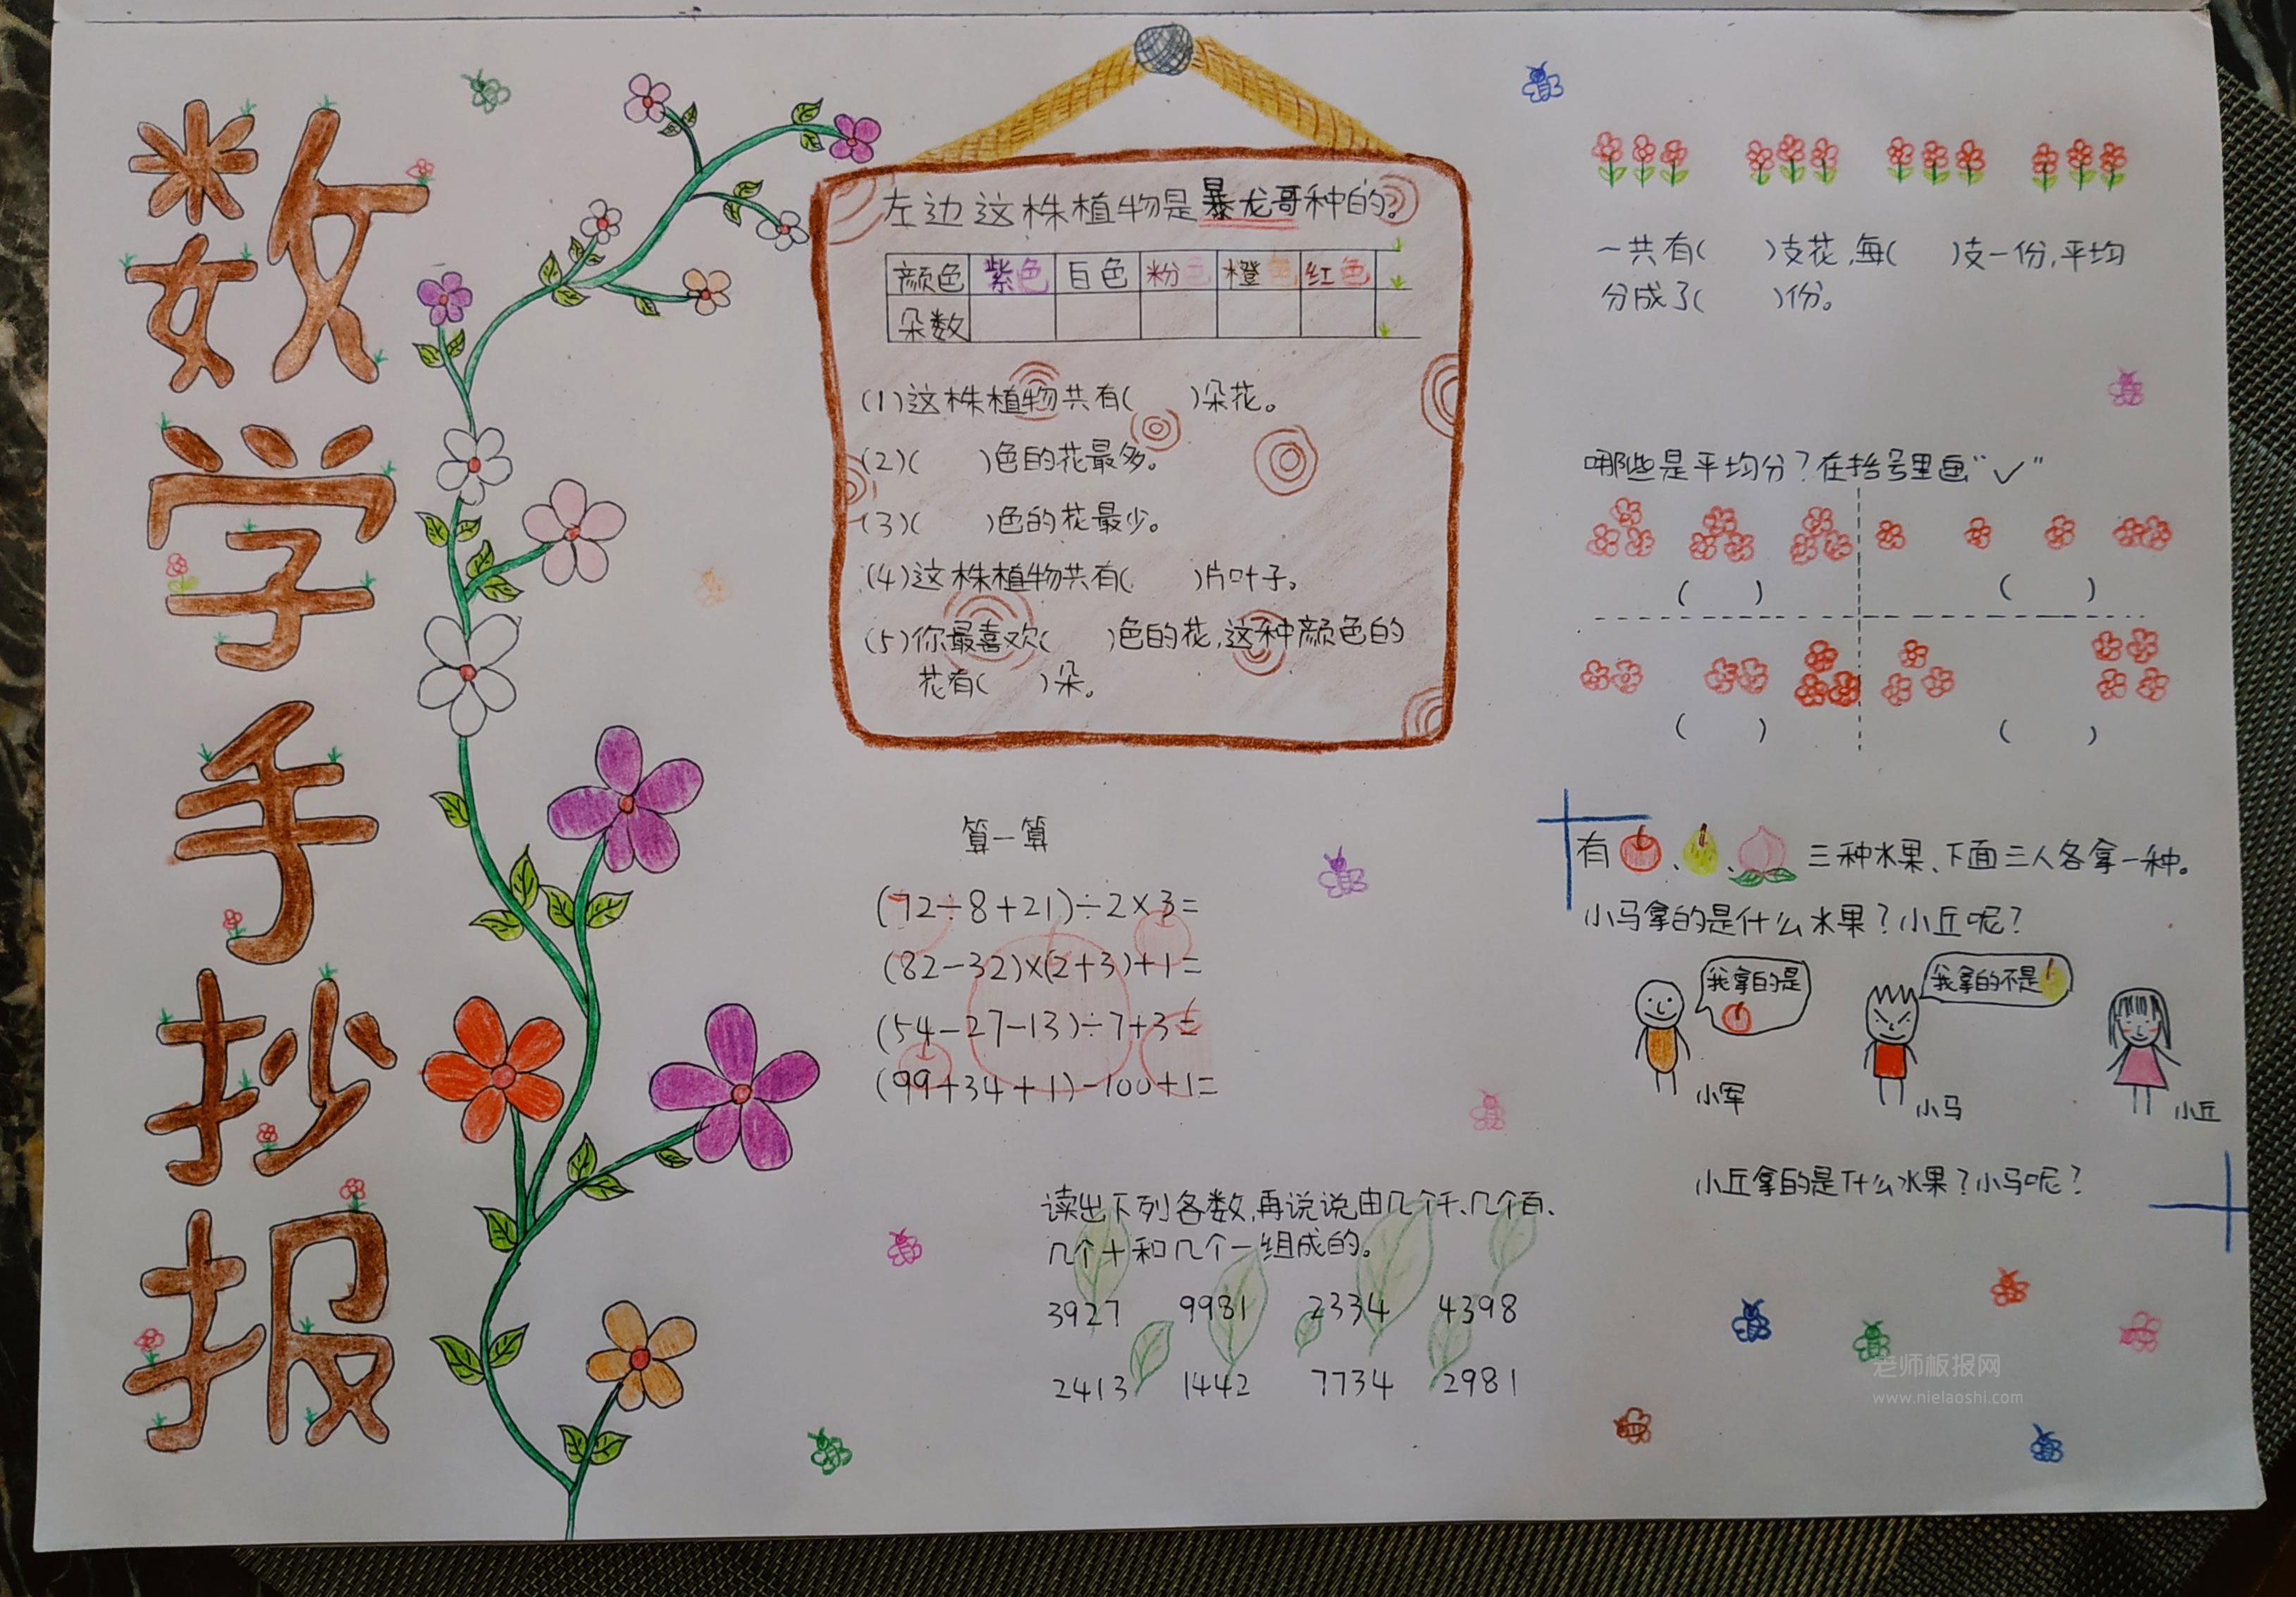 数学手抄报
左边这株植物是暴龙哥种的。
颜色 紫色 白色 粉色 橙色 红色
朵数
(1)这株植物共有( )朵花。
(2)( )色的花最多。
(3)( )色的花最少。
(4)这株植物共有( )片叶子。
(5)你最喜欢( )色的花,这种颜色的
花有( )朵。
算一算
(72÷8+21)÷2×3=
(82-32)×(2+3)+1=
(54-27-13)÷7+3=
(99+34+1)-100+1=
读出下列各数,再说说由几个千、几个百、
几个十和几个一组成的。
3927 9981 2334 4398
2413 1442 7734 2981
一共有( )支花,每( )支一份,平均
分成了( )份。
哪些是平均分?在括号里画“✓”
( ) ( )
( ) ( )
有 、 、 三种水果、下面三人各拿一种。
小马拿的是什么水果?小丘呢?
我拿的是
我拿的不是
小军
小马
小丘
小丘拿的是什么水果?小马呢?
老师板报网
www.nielaoshi.com